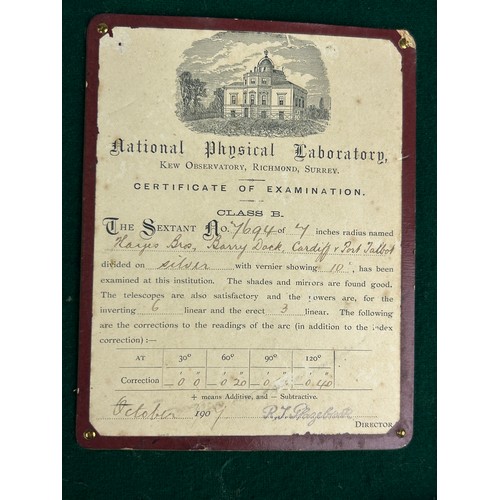 National Physical Laboratory,
KEW OBSERVATORY, RICHMOND, SURREY.
CERTIFICATE OF EXAMINATION.
CLASS B.
THE SEXTANT No. 7694 of 7 inches radius named
Hayes Bros, Barry Dock, Cardiff & Port Talbot
divided on silver with vernier showing 10" , has been
examined at this institution. The shades and mirrors are found good.
The telescopes are also satisfactory and the powers are, for the
inverting 6 linear and the erect 3 linear. The following
are the corrections to the readings of the arc (in addition to the index
correction) :—
AT 30° 60° 90° 120°
Correction -0 0 -0 20 -0 -0 40
+ means Additive, and — Subtractive.
October 190
R.T. Glazebrook
DIRECTOR